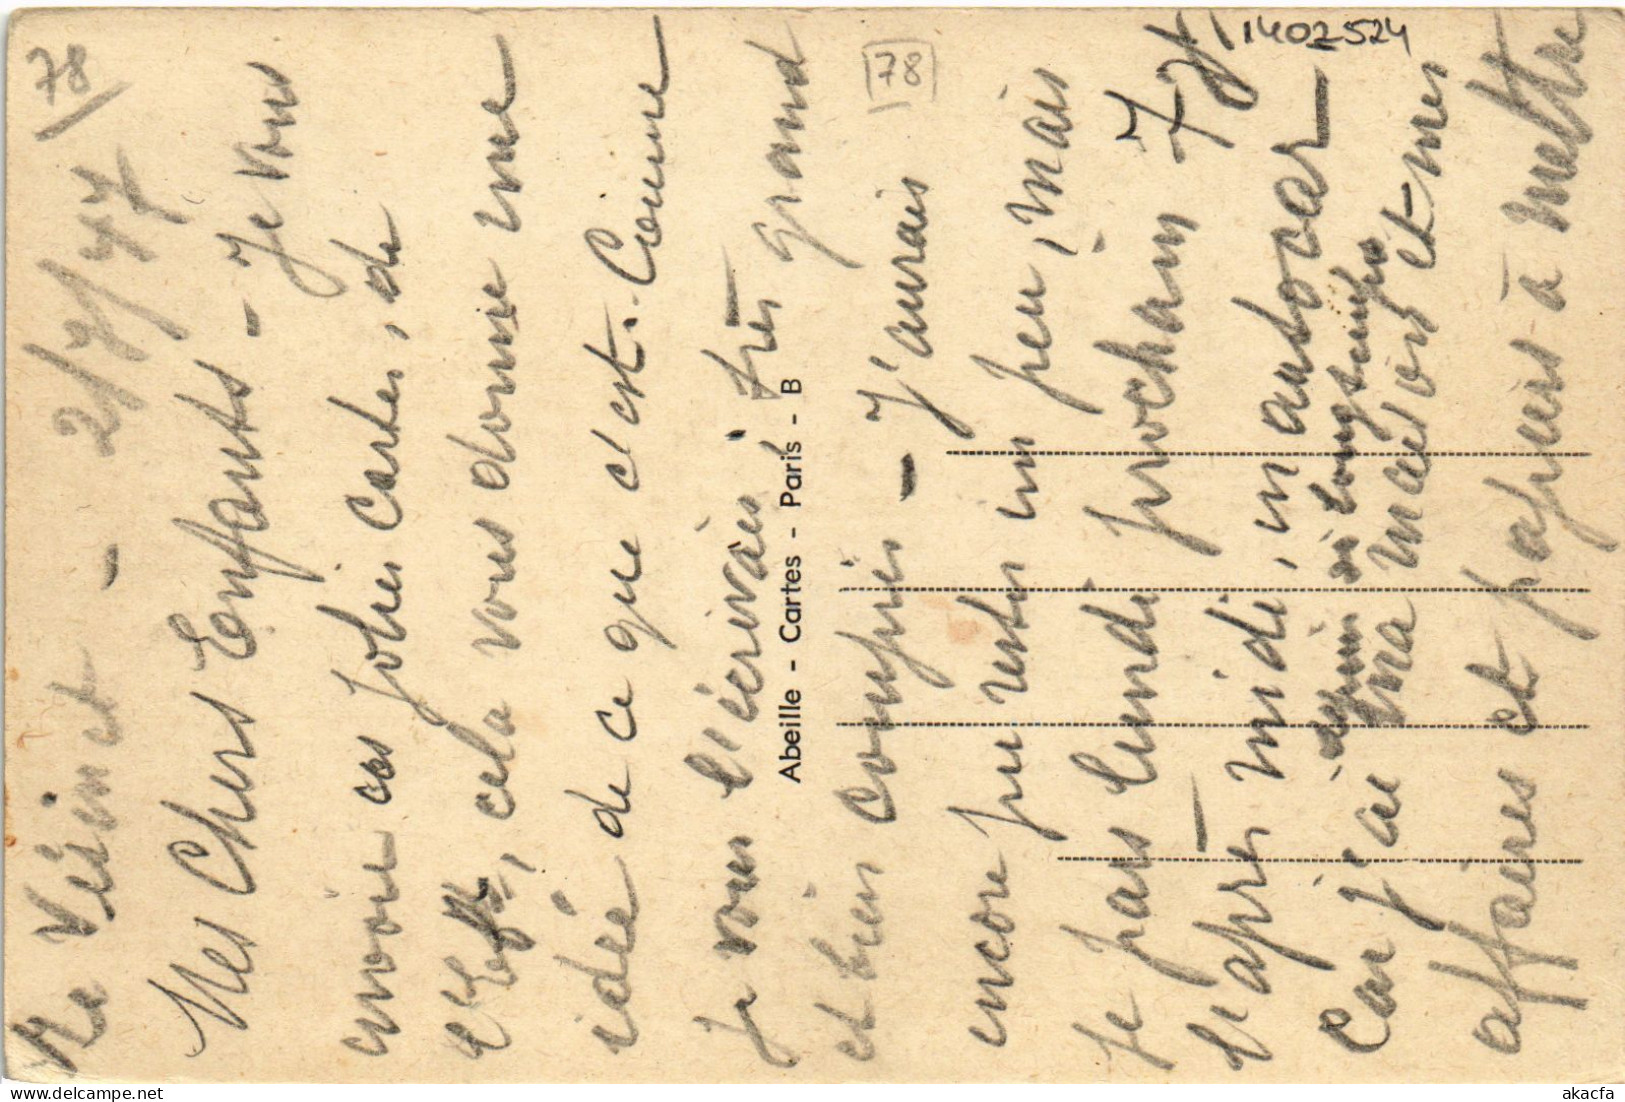 Le Vésinet - 2/7/47
Mes Chers Enfants - Je vous
envoie ces jolies cartes, de
cela vous donne une
idée de ce que c'est. Comme
je vous l'écrivais, très grand
et bien compris - J'aurais
encore pu rester un peu, mais
je pars lundi prochain 7 Jt
l'après midi, en autocar -
depuis si longtemps
Car j'ai ma maison et mes
affaires et papiers à mettre
Abeille - Cartes - Paris - B
78
78
1402524
akacfa